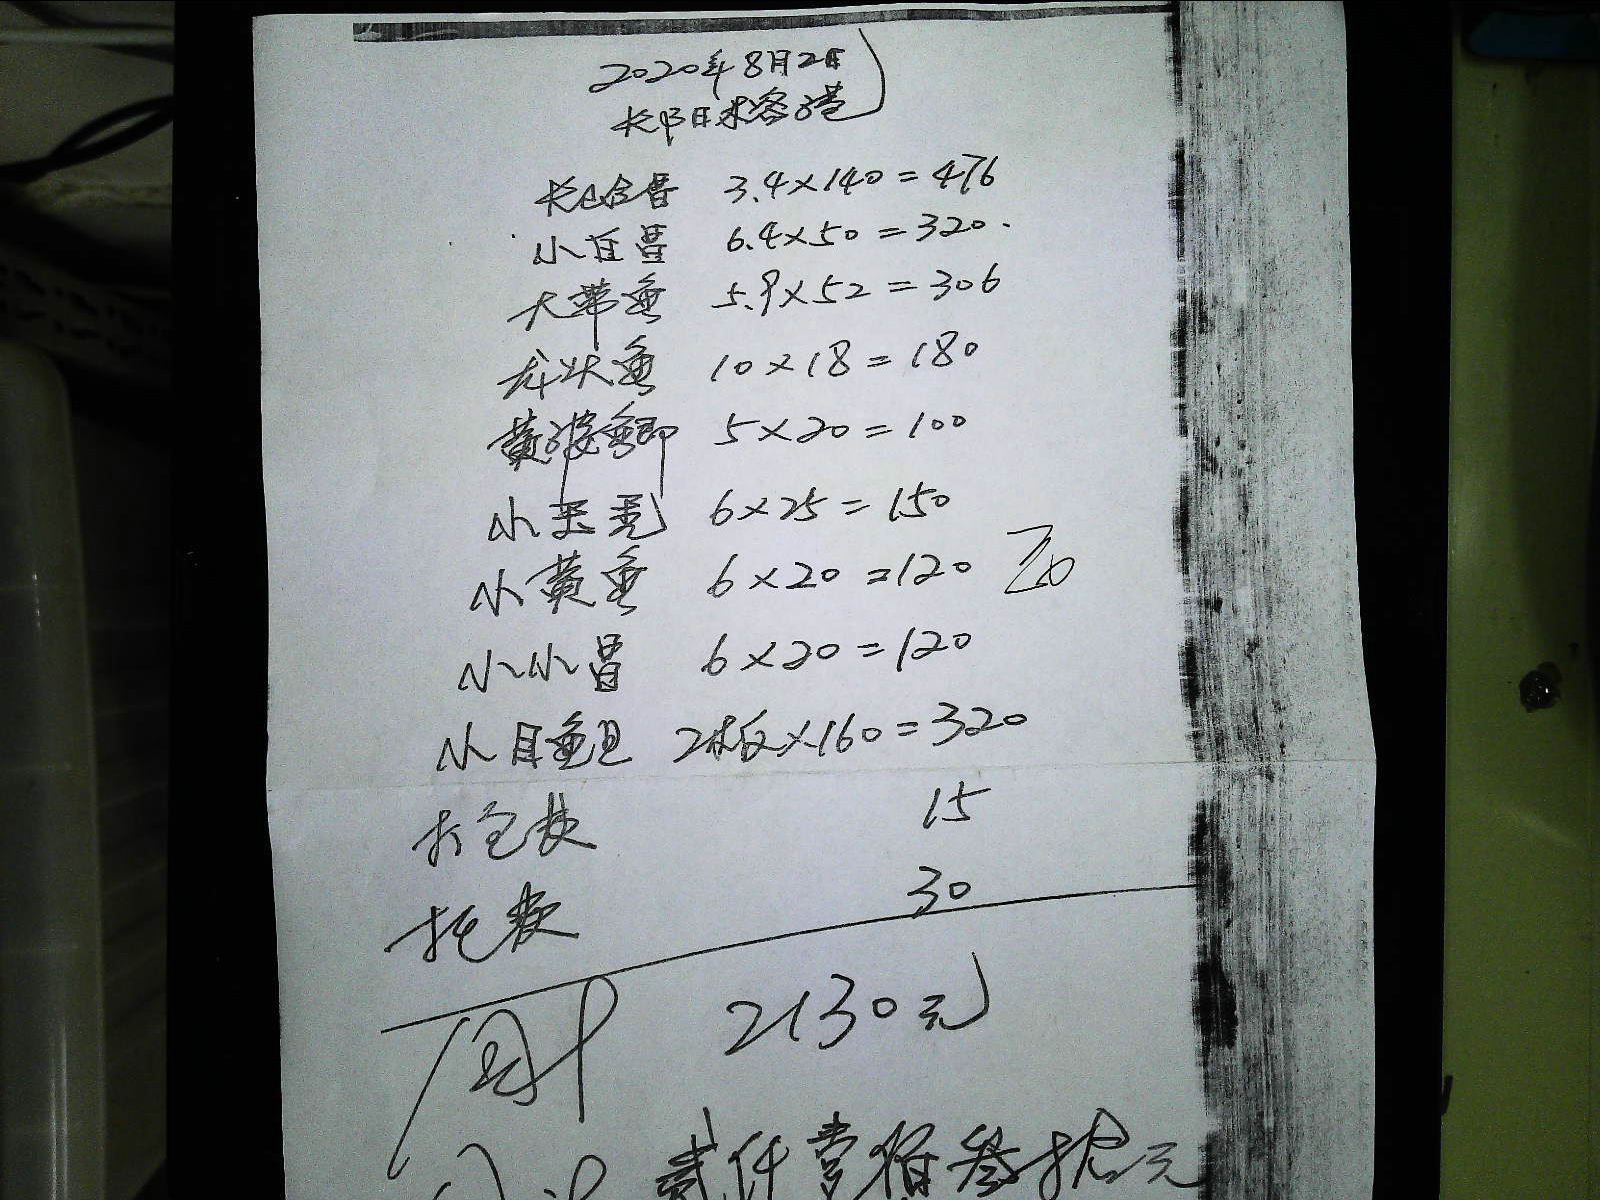 2020年8月2日
长阳来客港
长仓昌 3.4×140=476
小白昌 6.4×50=320
大带鱼 5.9×52=306
龙头鱼 10×18=180
黄婆鲫 5×20=100
小 6×25=150
小黄鱼 6×20=120
小小昌 6×20=120
小目鱼 2板×160=320
打包费 15
托费 30
2130元
贰仟壹佰叁拾元